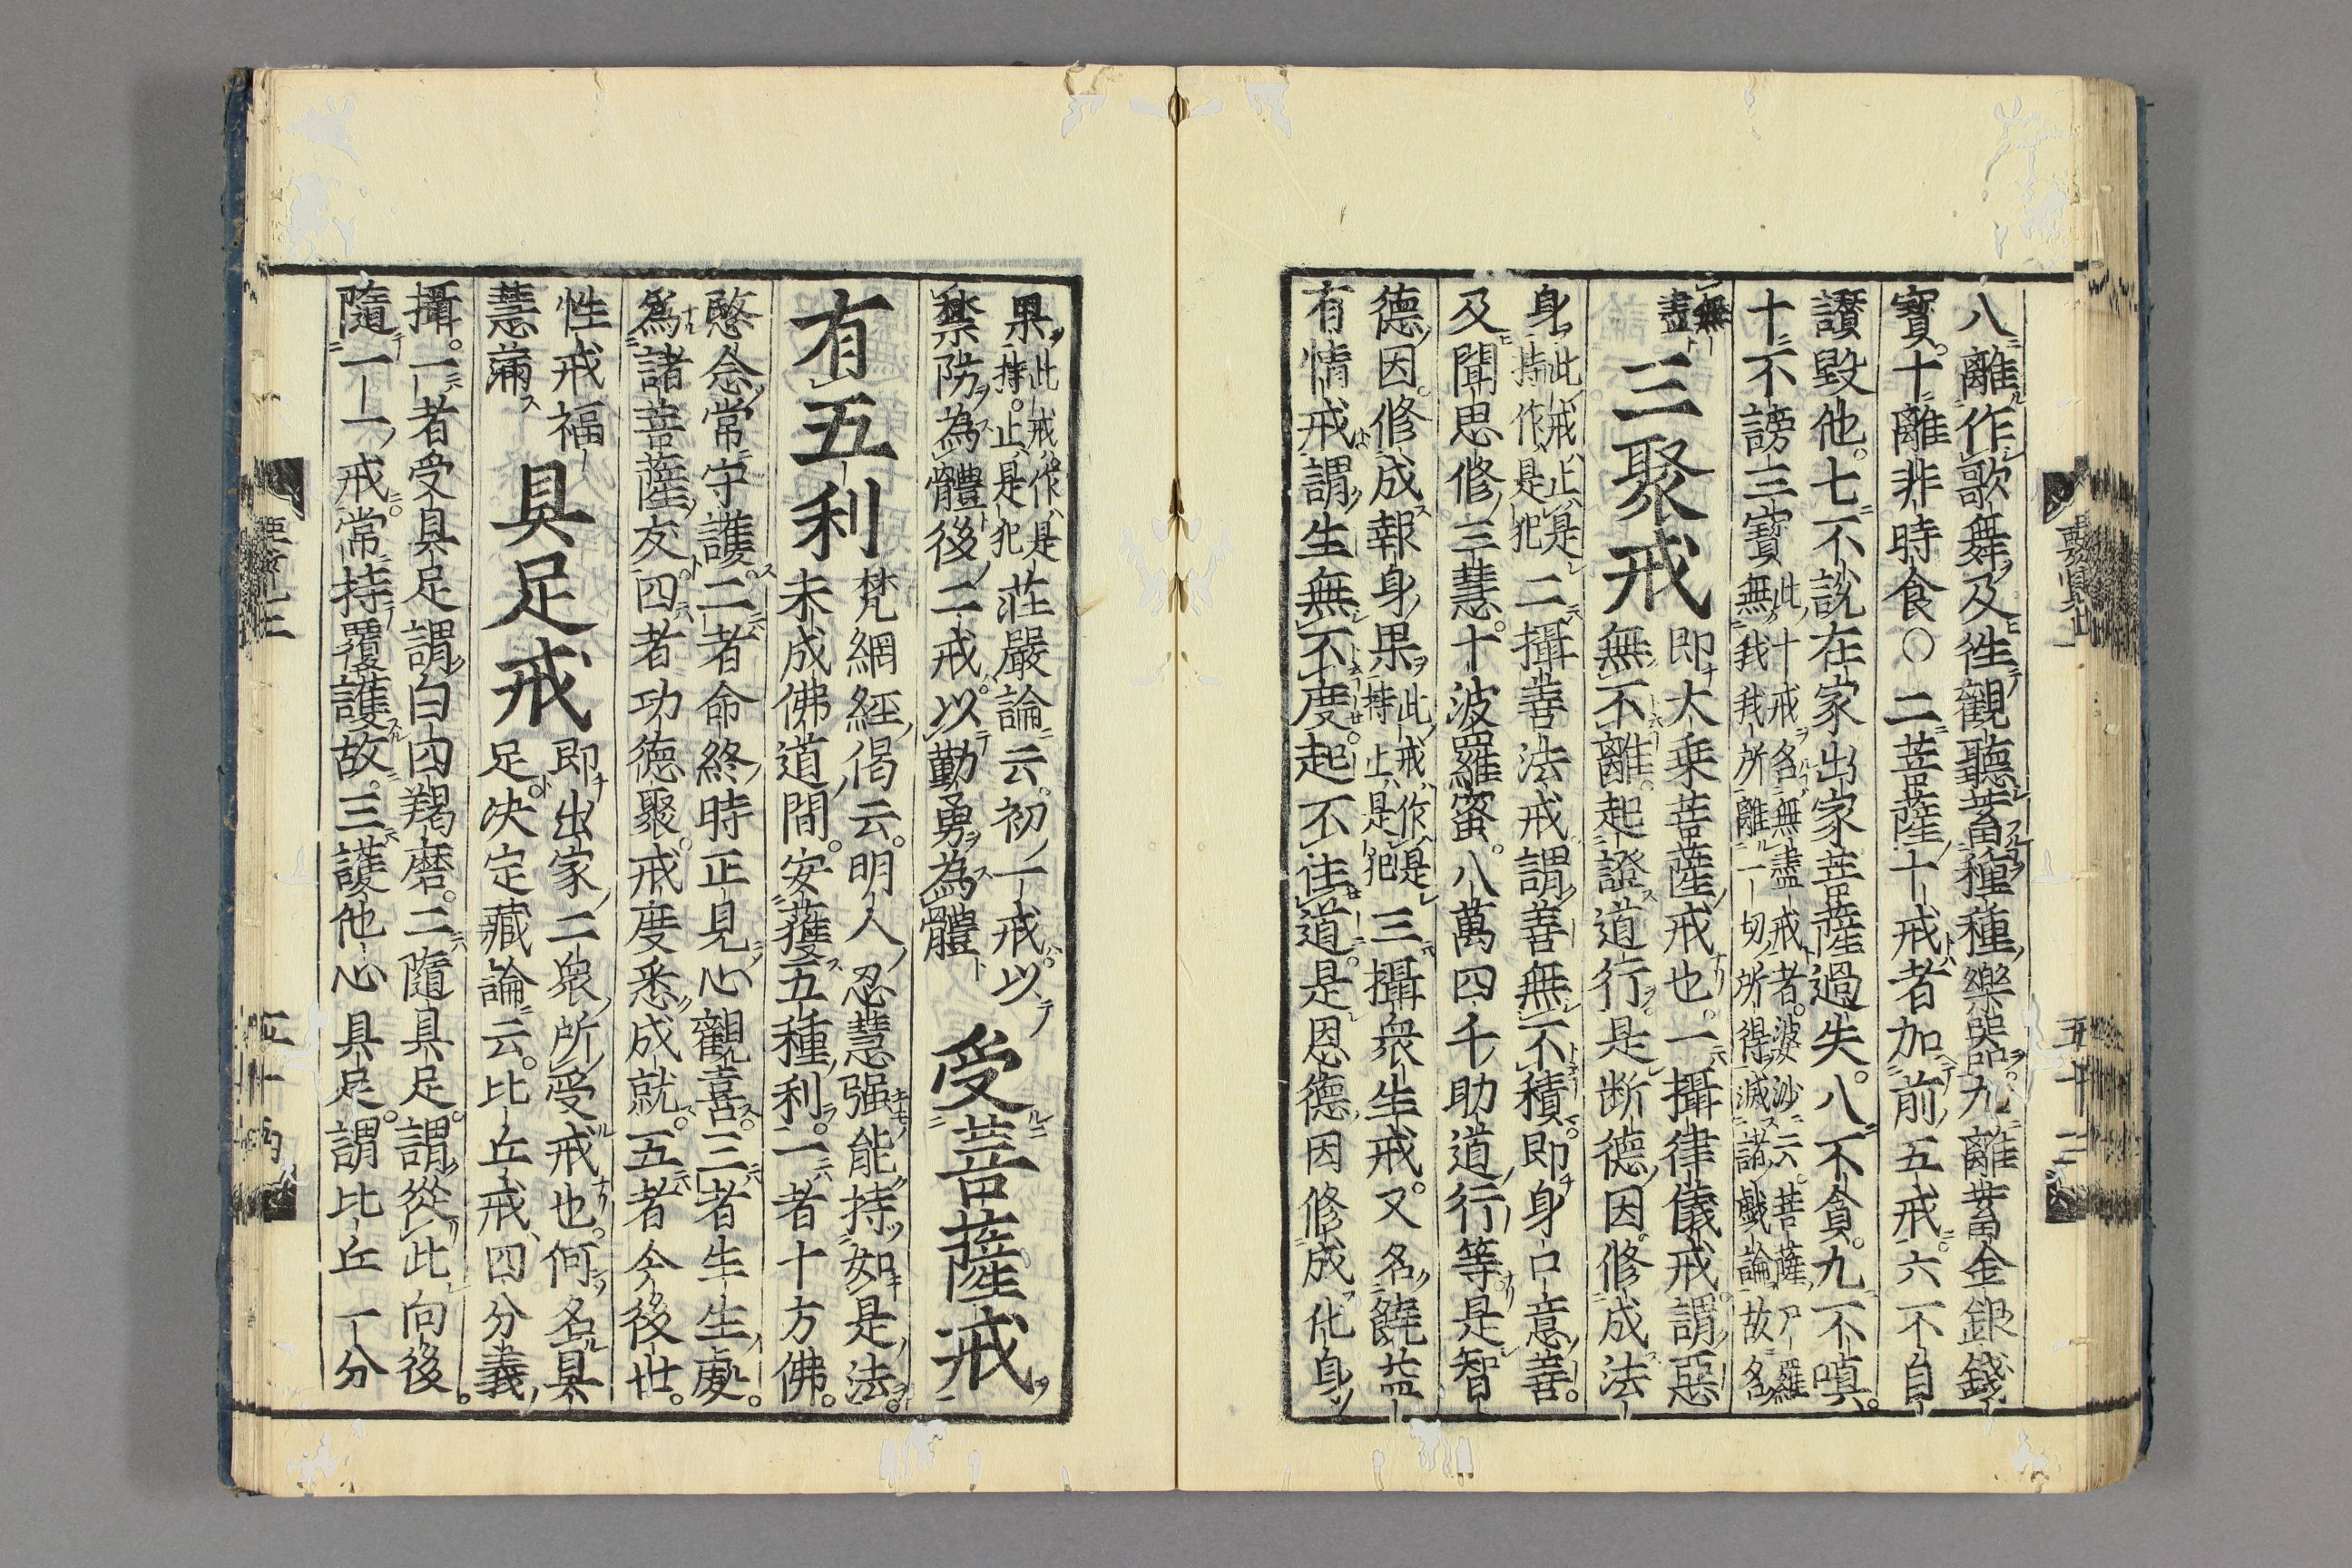 八離作歌舞及徃觀聽畜種種樂器九離畜金銀錢
寳。十離非時食〇二菩薩十戒者加前五戒。六不自
讃毀他。七不說在家出家菩薩過失。八不貪。九不嗔。
十不謗三寳
此十戒名無盡戒者。婆沙云。菩薩尸羅
無我我所離一切所得滅諸戲論故名
無
盡
三聚戒
即大乗菩薩戒也。一攝律儀戒。謂惡
無不離。起證道行。是断德因。修成法
身
此戒止是
持作是犯
二攝善法戒謂善無不積。即身口意善。
及聞思修三慧。十波羅蜜。八萬四千助道行等是智
德因。修成報身果
此戒作是
持止是犯
三攝衆生戒。又名饒益
有情戒謂生無不度。起不住道。是恩德因修成化身
果
此戒作是
持。止是犯
莊嚴論云。初一戒以
禁防為體後二戒。以勤勇為體
受菩薩戒
有五利
梵網經偈云。明人忍慧强能持如是法。
未成佛道間。安獲五種利。一者十方佛。
愍念常守護。二者命終時正見心觀喜。三者生生處。
為諸菩薩友。四者功德聚。戒度悉成就。五者今後世。
性戒福
慧滿
具足戒
即出家二衆所受戒也。何名具
足。決定藏論云。比丘戒四分義
攝。一者受具足謂白四羯磨。二隨具足。謂從此向後。
隨一一戒。常持覆護故。三護他心具足。謂比丘一分
五十三